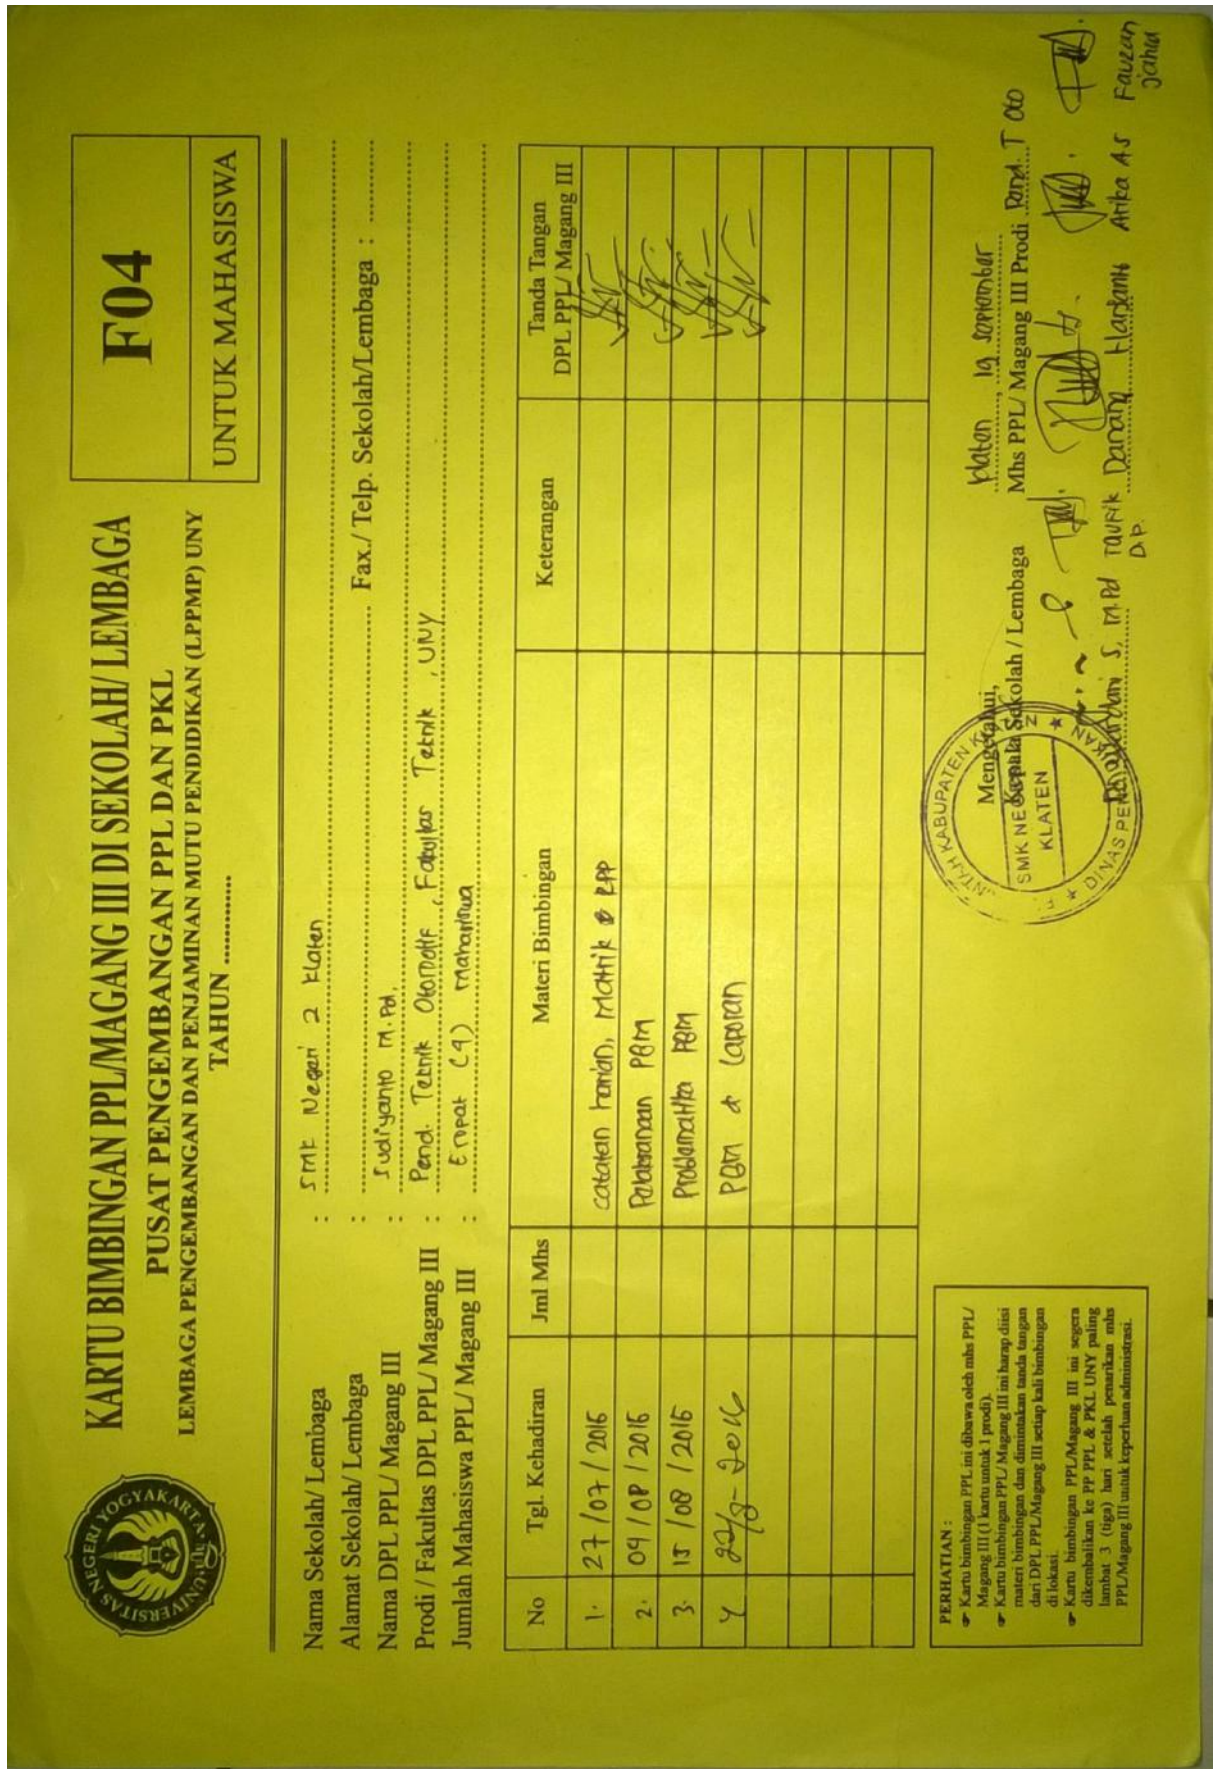 UNIVERSITAS NEGERI YOGYAKARTA
KARTU BIMBINGAN PPL/MAGANG III DI SEKOLAH/ LEMBAGA
PUSAT PENGEMBANGAN PPL DAN PKL
LEMBAGA PENGEMBANGAN DAN PENJAMINAN MUTU PENDIDIKAN (LPPMP) UNY
TAHUN ............
F04
UNTUK MAHASISWA
Nama Sekolah/ Lembaga : SMK Negeri 2 Klaten
Alamat Sekolah/ Lembaga : ............ Fax./ Telp. Sekolah/Lembaga : ............
Nama DPL PPL/ Magang III : Sudiyanto M.Pd.
Prodi / Fakultas DPL PPL/ Magang III : Pend. Teknik Otomotif, Fakultas Teknik, UNY
Jumlah Mahasiswa PPL/ Magang III : Empat (4) mahasiswa
No Tgl. Kehadiran Jml Mhs Materi Bimbingan Keterangan Tanda Tangan DPL PPL/ Magang III
1. 27/07/2016 catatan harian, Matrik & RPP
2. 04/08/2016 Pelaksanaan PBM
3. 15/08/2016 Problematika PBM
4 22/8-2016 PBM & Laporan
PERHATIAN :
☞ Kartu bimbingan PPL ini dibawa oleh mhs PPL/
Magang III (1 kartu untuk 1 prodi).
☞ Kartu bimbingan PPL/ Magang III ini harap diisi
materi bimbingan dan dimintakan tanda tangan
dari DPL PPL/Magang III setiap kali bimbingan
di lokasi.
☞ Kartu bimbingan PPL/Magang III ini segera
dikembalikan ke PP PPL & PKL UNY paling
lambat 3 (tiga) hari setelah penarikan mhs
PPL/Magang III untuk keperluan administrasi.
Mengetahui,
Kepala Sekolah / Lembaga
SMK NEGERI 2
KLATEN
DINAS PENDIDIKAN
S, M.Pd
Klaten, 19 September
Mhs PPL/ Magang III Prodi Pend. T Oto
Taufik D.P.
Danang Hardanto
Arika AS
Fauzan